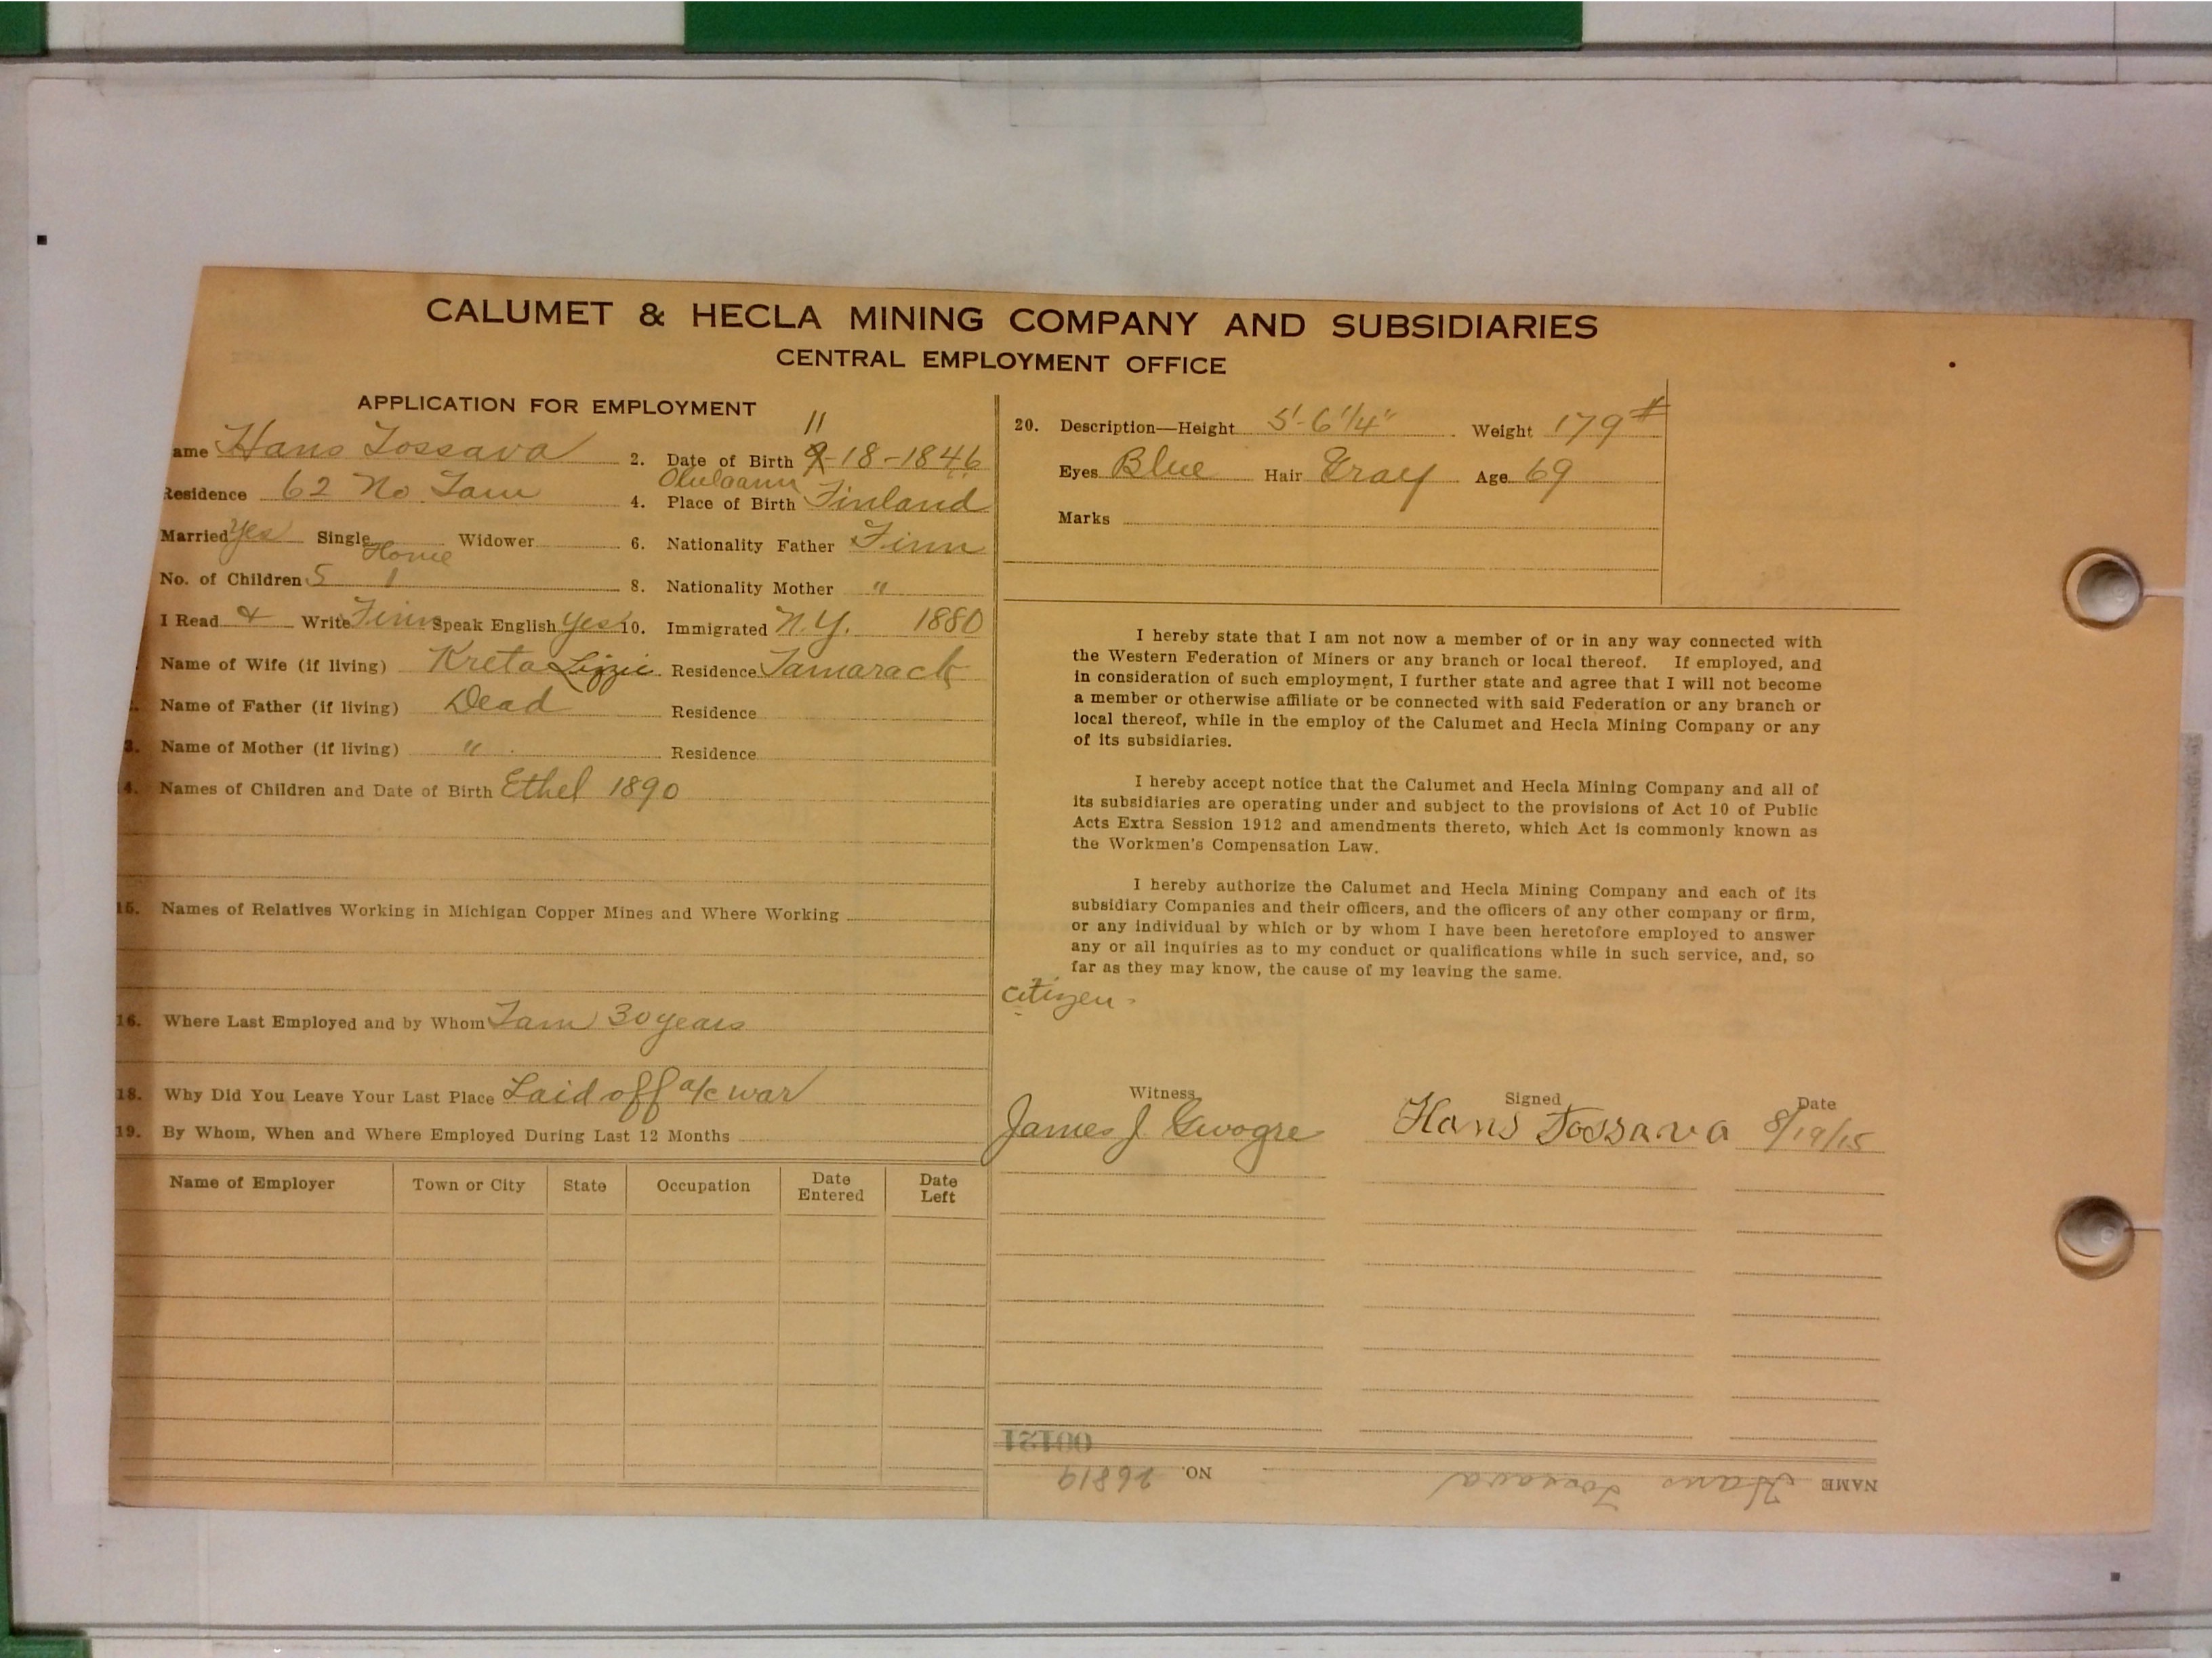 CALUMET & HECLA MINING COMPANY AND SUBSIDIARIES
CENTRAL EMPLOYMENT OFFICE
APPLICATION FOR EMPLOYMENT
11
ame Hans Tossava 2. Date of Birth 9-18-1846
Residence 62 No Tam 4. Place of Birth Finland
Married Yes Single Widower 6. Nationality Father Finn
Home
No. of Children 5 1 8. Nationality Mother "
I Read & Write Finn Speak English Yes 10. Immigrated N.Y. 1880
Name of Wife (if living) Kreta Lizzie Residence Tamarack
Name of Father (if living) Dead Residence
3. Name of Mother (if living) " Residence
4. Names of Children and Date of Birth Ethel 1890
15. Names of Relatives Working in Michigan Copper Mines and Where Working
16. Where Last Employed and by Whom Tam 30 years
18. Why Did You Leave Your Last Place Laid off a/c war
19. By Whom, When and Where Employed During Last 12 Months
Name of Employer Town or City State Occupation Date Entered Date Left
20. Description—Height 5'-6 1/4" Weight 179 #
Eyes Blue Hair Gray Age 69
Marks
I hereby state that I am not now a member of or in any way connected with
the Western Federation of Miners or any branch or local thereof. If employed, and
in consideration of such employment, I further state and agree that I will not become
a member or otherwise affiliate or be connected with said Federation or any branch or
local thereof, while in the employ of the Calumet and Hecla Mining Company or any
of its subsidiaries.
I hereby accept notice that the Calumet and Hecla Mining Company and all of
its subsidiaries are operating under and subject to the provisions of Act 10 of Public
Acts Extra Session 1912 and amendments thereto, which Act is commonly known as
the Workmen's Compensation Law.
I hereby authorize the Calumet and Hecla Mining Company and each of its
subsidiary Companies and their officers, and the officers of any other company or firm,
or any individual by which or by whom I have been heretofore employed to answer
any or all inquiries as to my conduct or qualifications while in such service, and, so
far as they may know, the cause of my leaving the same.
citizen.
Witness Signed Date
James J. Hans Tossava 8/19/15
NAME Hans Tossava NO. 26819